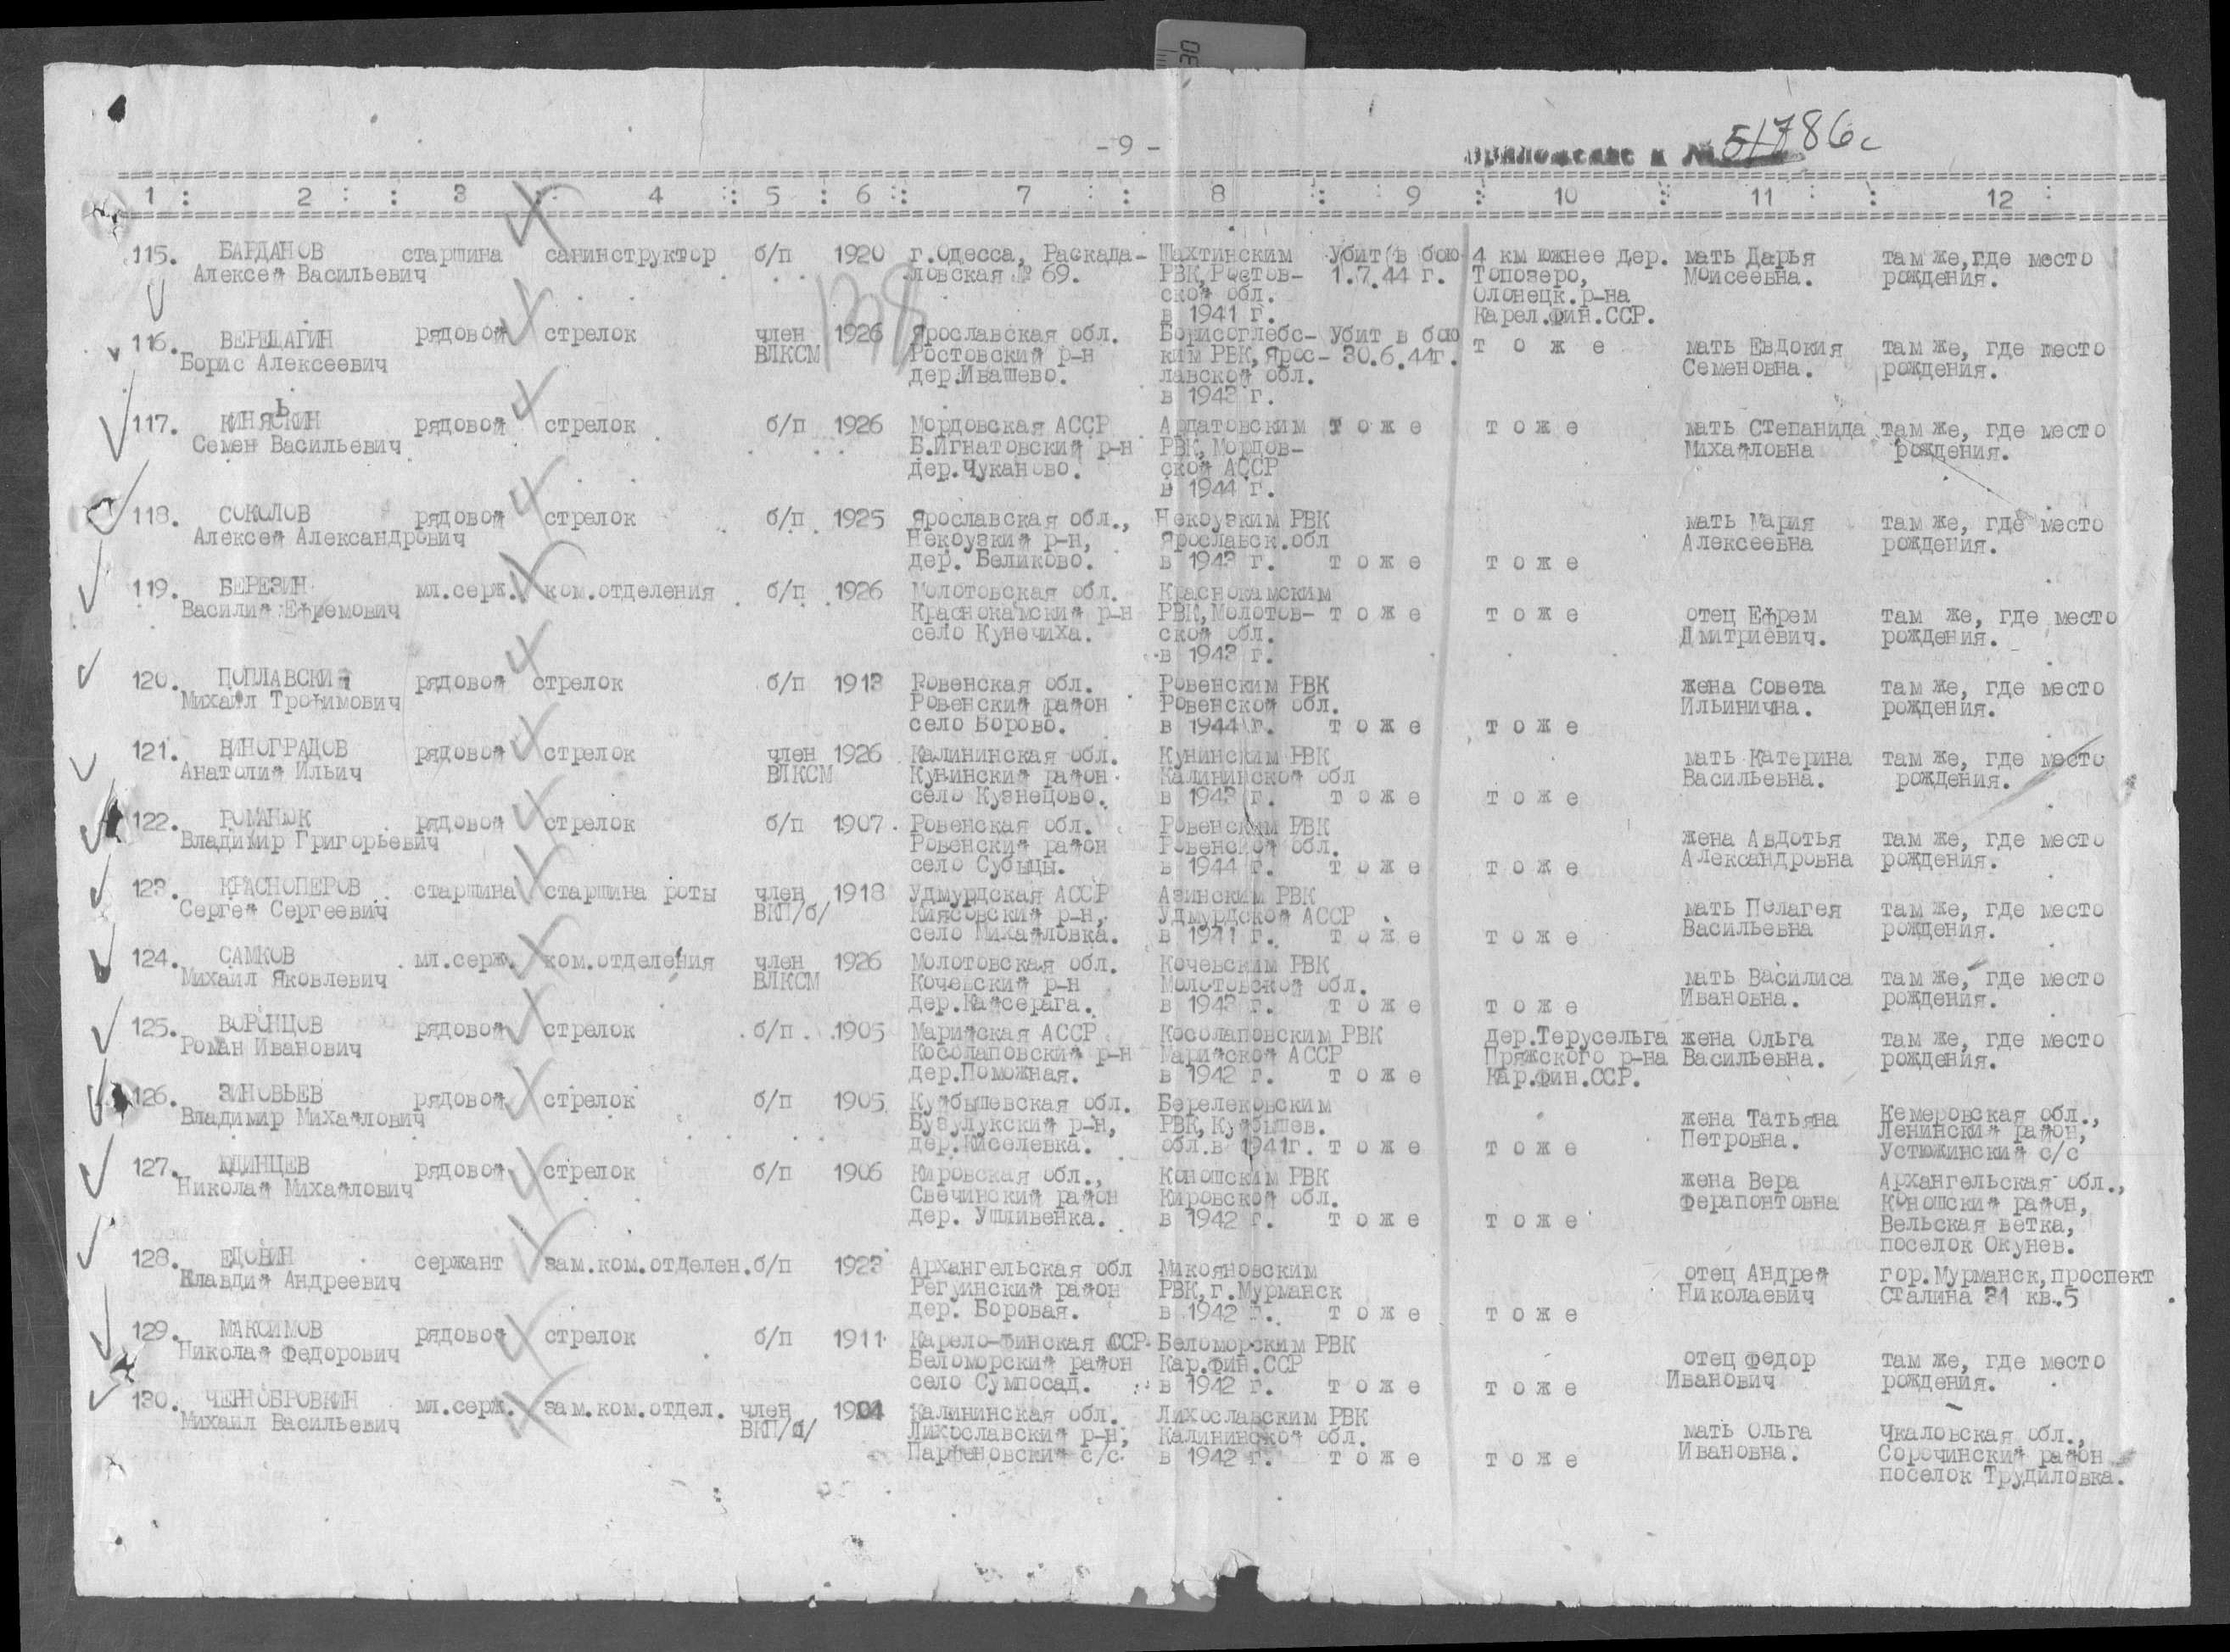 - 9 -
Приложение к № 51786с
1 : 2 : 3 : 4 : 5 : 6 : 7 : 8 : 9 : 10 : 11 : 12
115. БАРДАНОВ старшина санинструктор б/п 1920 г.Одесса, Раскада- Шахтинским Убит в бою 4 км южнее дер. мать Дарья там же, где место
Алексей Васильевич ловская № 69. РВК, Ростов- 1.7.44 г. Топозеро, Моисеевна. рождения.
ской обл. Олонецк.р-на
в 1941 г. Карел.фин.ССР.
116. ВЕРЕЩАГИН рядовой стрелок член 1926 Ярославская обл. Борисоглебс- Убит в бою т о ж е мать Евдокия там же, где место
Борис Алексеевич ВЛКСМ Ростовский р-н ким РВК, Ярос- 30.6.44г. Семеновна. рождения.
дер.Ивашево. лавской обл.
в 1943 г.
ь
117. КИНЯСКИН рядовой стрелок б/п 1926 Мордовская АССР Ардатовским т о ж е т о ж е мать Степанида там же, где место
Семен Васильевич Б.Игнатовский р-н РВК, Мордов- Михайловна рождения.
дер.Чуканово. ской АССР
в 1944 г.
118. СОКОЛОВ рядовой стрелок б/п 1925 Ярославская обл., Некоузким РВК мать Мария там же, где место
Алексей Александрович Некоузкий р-н, Ярославск.обл Алексеевна рождения.
дер. Беликово. в 1943 г. т о ж е т о ж е
119. БЕРЕЗИН мл.серж. ком.отделения б/п 1926 Молотовская обл. Краснокамским
Василий Ефремович Краснокамский р-н РВК, Молотов- т о ж е т о ж е отец Ефрем там же, где место
село Кунечиха. ской обл. Дмитриевич. рождения.
в 1943 г.
120. ПОПЛАВСКИЙ рядовой стрелок б/п 1913 Ровенская обл. Ровенским РВК жена Совета там же, где место
Михаил Трофимович Ровенский район Ровенской обл. Ильинична. рождения.
село Борово. в 1944 г. т о ж е т о ж е
121. ВИНОГРАДОВ рядовой стрелок член 1926 Калининская обл. Кунинским РВК мать Катерина там же, где место
Анатолий Ильич ВЛКСМ Кунинский район Калининской обл Васильевна. рождения.
село Кузнецово. в 1943 г. т о ж е т о ж е
122. РОМАНЮК рядовой стрелок б/п 1907 Ровенская обл. Ровенским РВК жена Авдотья там же, где место
Владимир Григорьевич Ровенский район Ровенской обл. Александровна рождения.
село Субыцы. в 1944 г. т о ж е т о ж е
123. КРАСНОПЕРОВ старшина старшина роты член 1918 Удмурдская АССР Азинским РВК мать Пелагея там же, где место
Сергей Сергеевич ВКП/б/ Киясовский р-н, Удмурдской АССР Васильевна рождения.
село Михайловка. в 1941 г. т о ж е т о ж е
124. САМКОВ мл.серж. ком.отделения член 1926 Молотовская обл. Кочевским РВК мать Василиса там же, где место
Михаил Яковлевич ВЛКСМ Кочевский р-н Молотовской обл. Ивановна. рождения.
дер.Кайсерага. в 1943 г. т о ж е т о ж е
125. ВОРОНЦОВ рядовой стрелок б/п 1905 Марийская АССР Косолаповским РВК дер.Терусельга жена Ольга там же, где место
Роман Иванович Косолаповский р-н Марийской АССР Пряжского р-на Васильевна. рождения.
дер.Поможная. в 1942 г. т о ж е Кар.фин.ССР.
126. ЗИНОВЬЕВ рядовой стрелок б/п 1905 Куйбышевская обл. Берелековским жена Татьяна Кемеровская обл.,
Владимир Михайлович Бузулукский р-н, РВК, Куйбышев. Петровна. Ленинский район,
дер.Киселевка. обл.в 1941г. т о ж е т о ж е Устюжинский с/с
127. ЮДИНЦЕВ рядовой стрелок б/п 1906 Кировская обл., Коношским РВК жена Вера Архангельская обл.,
Николай Михайлович Свечинский район Кировской обл. Ферапонтовна Коношский район,
дер. Ушливенка. в 1942 г. т о ж е т о ж е Вельская ветка,
поселок Окунев.
128. ЕДОВИН сержант зам.ком.отделен. б/п 1923 Архангельская обл Микояновским отец Андрей гор.Мурманск, проспект
Клавдий Андреевич Регуинский район РВК, г.Мурманск Николаевич Сталина 31 кв.5
дер. Боровая. в 1942 г. т о ж е т о ж е
129. МАКСИМОВ рядовой стрелок б/п 1911 Карело-Финская ССР Беломорским РВК отец Федор там же, где место
Николай Федорович Беломорский район Кар.фин.ССР Иванович рождения.
село Сумпосад. в 1942 г. т о ж е т о ж е
130. ЧЕРНОБРОВКИН мл.серж. зам.ком.отдел. член 1904 Калининская обл. Лихославским РВК мать Ольга Чкаловская обл.,
Михаил Васильевич ВКП/б/ Лихославский р-н, Калининской обл. Ивановна. Сорочинский район
Парфеновский с/с. в 1942 г. т о ж е т о ж е поселок Трудиловка.